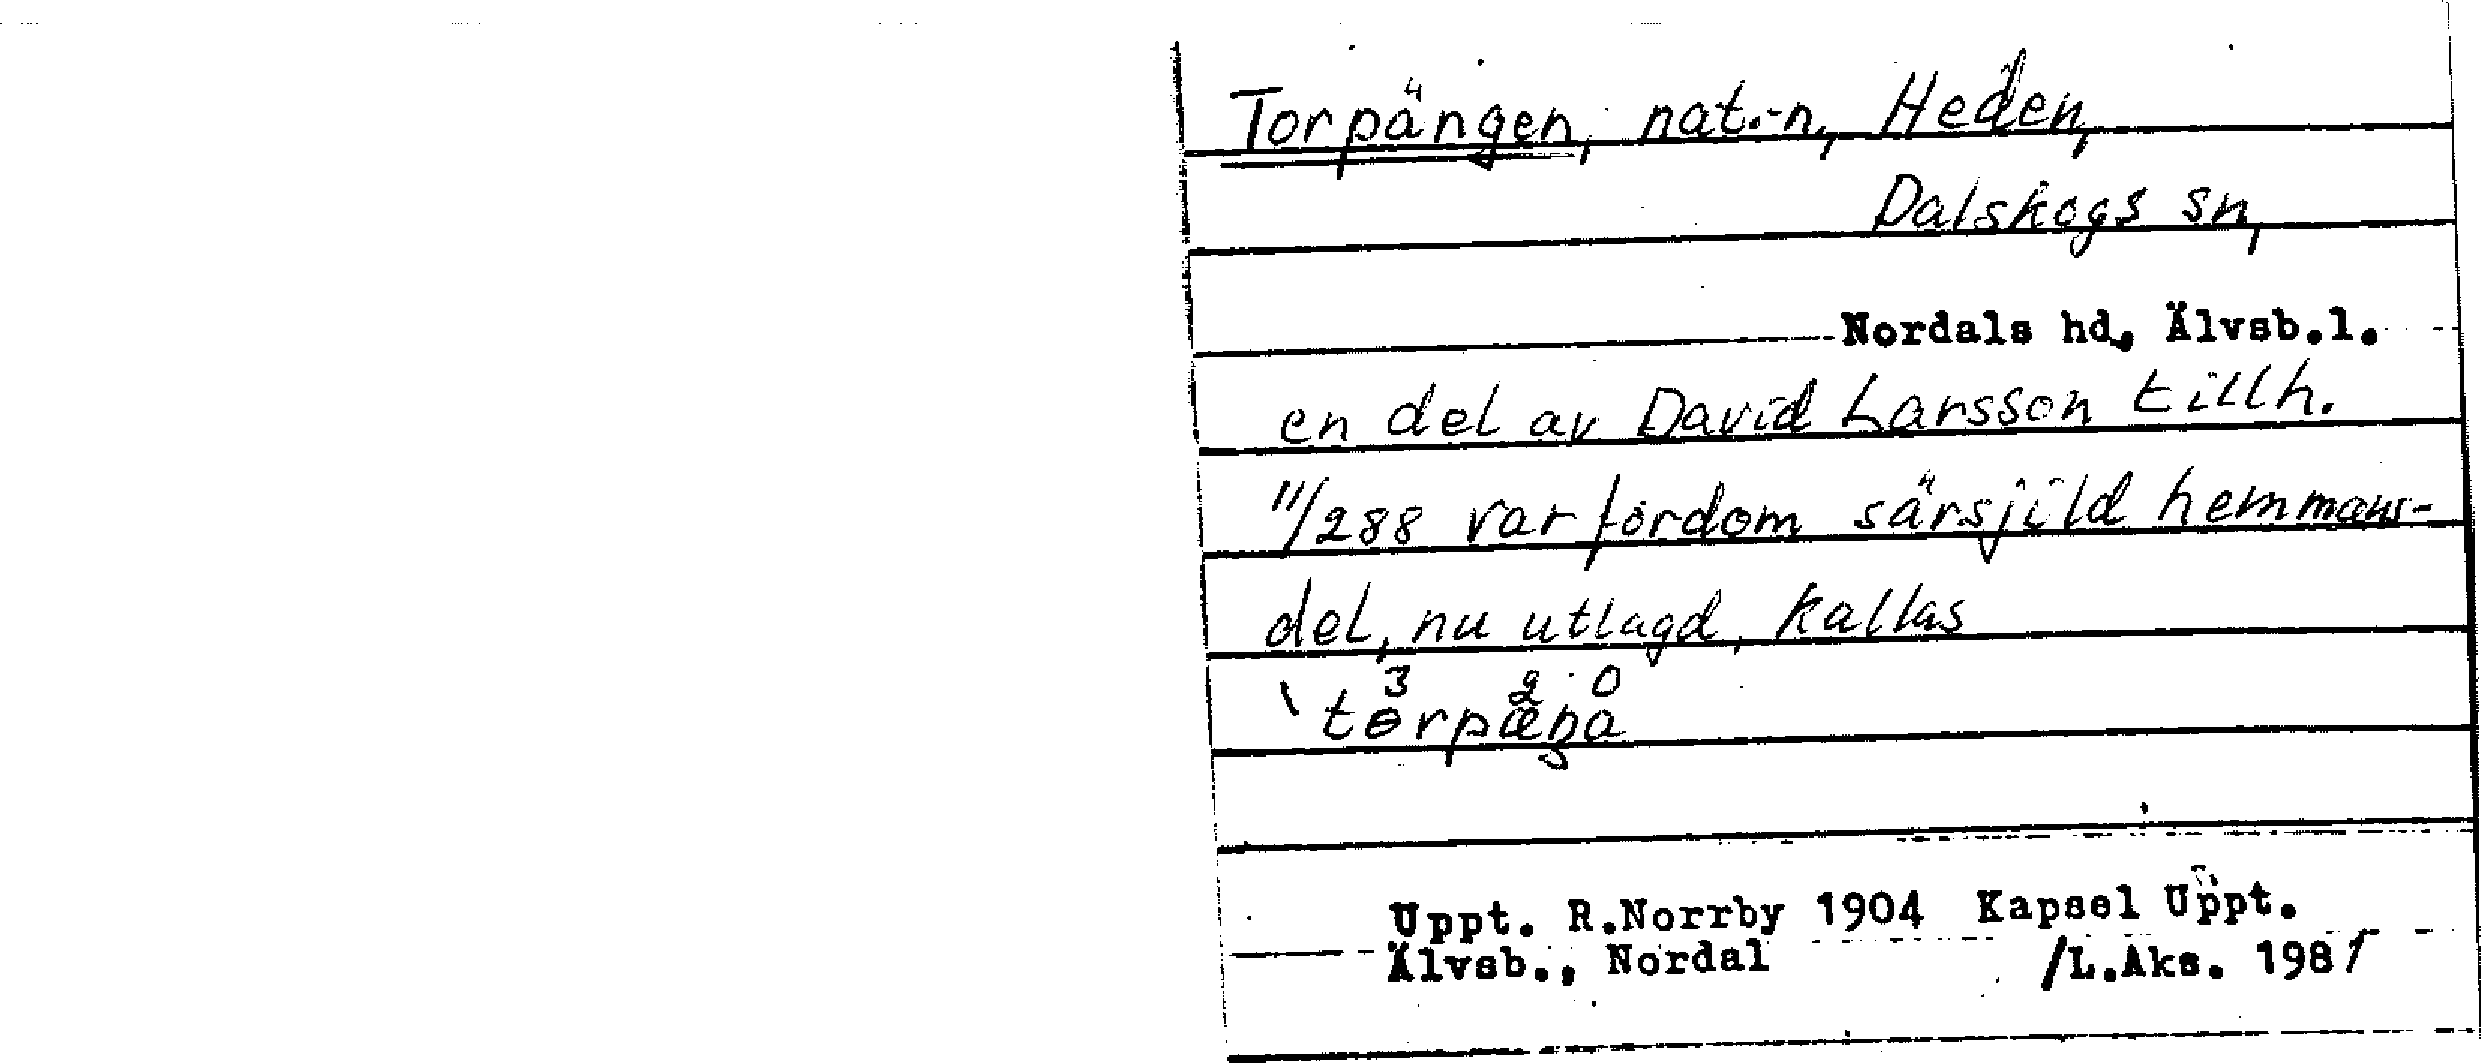 Torpängen, nat.-n, Heden,
Dalskogs sn,
Nordals hd, Älvsb.l.
en del av David Larsson tillh.
11/288 var fordom särsjild hemmans-
del, nu utlagd, kallas
Uppt. R.Norrby 1904 Kapsel Uppt.
Älvsb., Nordal /L.Aks. 1981